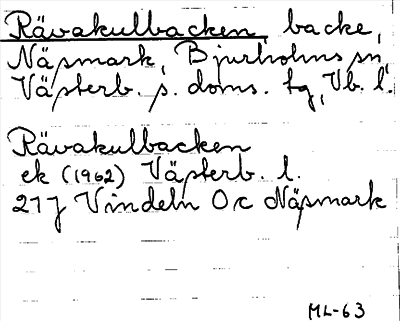 Rävakulbacken, backe,
Näsmark, Bjurholms sn,
Västerb. s. doms. tg, Vb. l.
Rävakulbacken
ek (1962) Västerb. l.
21J Vindeln 0c Näsmark
ML-63